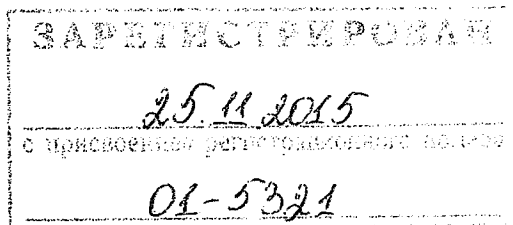 ЗАРЕГИСТРИРОВАН
25.11.2015
с присвоением регистрационного номера
01-5321